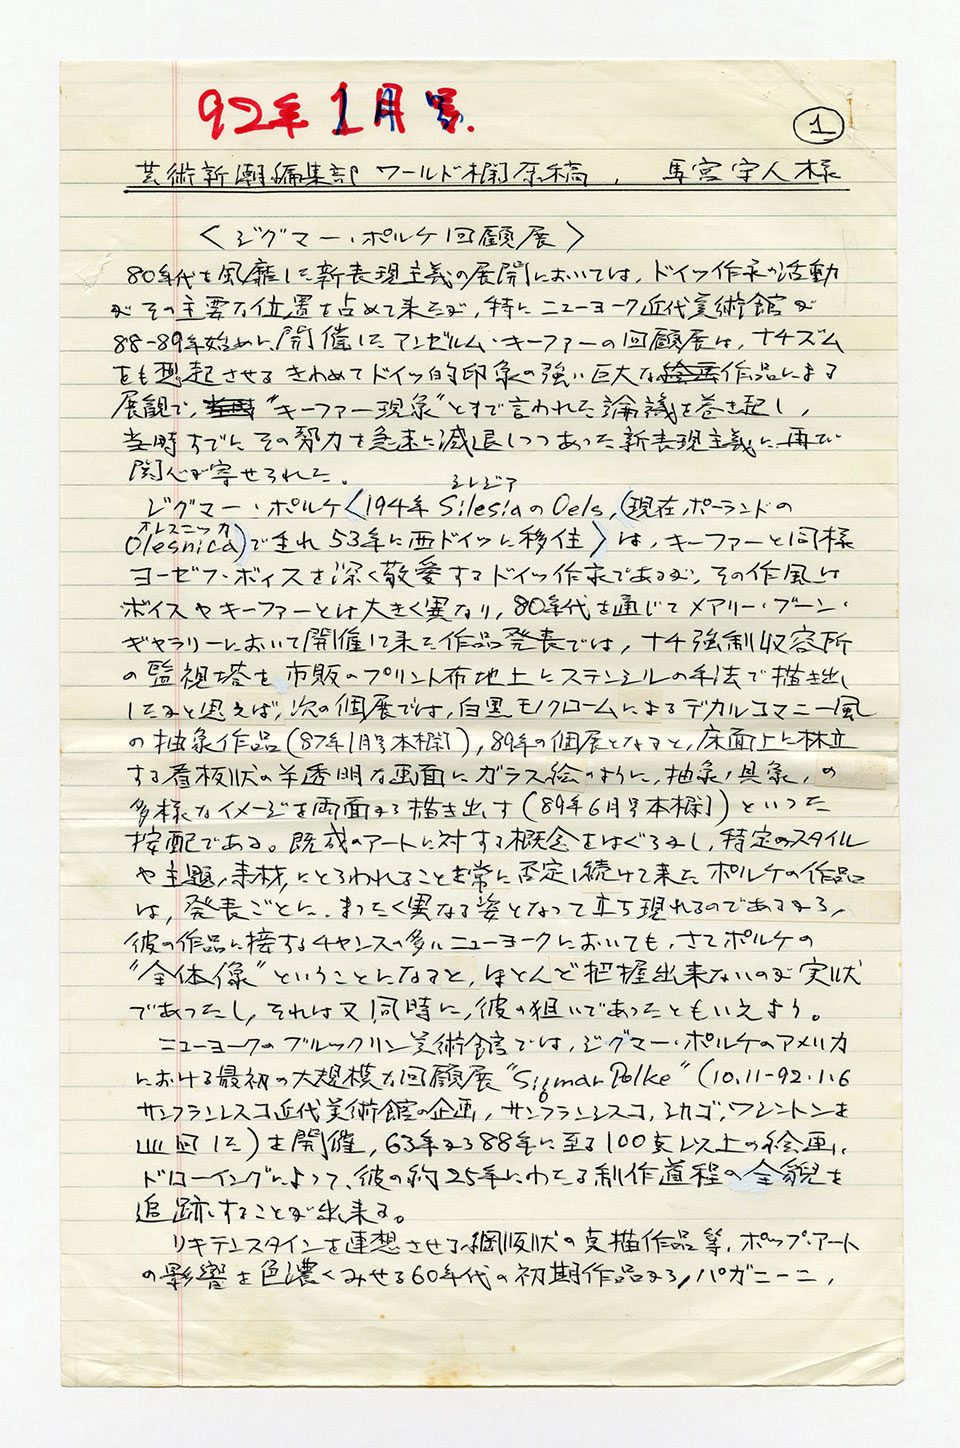 92年1月号.
1
芸術新潮編集部 ワールド欄原稿, 馬宮守人様
〈ジグマー・ポルケ回顧展〉
80年代を風靡した新表現主義の展開においては、ドイツ作家の活動
がその主要な位置を占めて来たが、特にニューヨーク近代美術館が
88-89年始めに開催したアンゼルム・キーファーの回顧展は、ナチズム
をも想起させるきわめてドイツ的印象の強い巨大な作品による
展観で、“キーファー現象”とまで言われた論議を巻き起し、
当時すでにその勢力を急速に減退しつつあった新表現主義に再び
関心が寄せられた。
シレジア
ジグマー・ポルケ〈194年SilesiaのOels,(現在,ポーランドの
オレスニッカ
Olesnica)で生れ53年に西ドイツに移住〉は、キーファーと同様
ヨーゼフ・ボイスを深く敬愛するドイツ作家であるが、その作風は
ボイスやキーファーとは大きく異なり、80年代を通じてメアリー・ブーン・
ギャラリーにおいて開催して来た作品発表では、ナチ強制収容所
の監視塔を市販のプリント布地上にステンシルの手法で描き出
したかと思えば、次の個展では、白黒モノクロームによるデカルコマニー風
の抽象作品(87年1月号本欄)、89年の個展となると、床面上に林立
する看板状の半透明な画面にガラス絵のように、抽象、具象、の
多様なイメージを両面から描き出す(89年6月号本欄)といった
按配である。既成のアートに対する概念をはぐらかし、特定のスタイル
や主題、素材、にとらわれることを常に否定し続けて来たポルケの作品
は、発表ごとに、まったく異なる姿となって立ち現れるのであるから、
彼の作品に接するチャンスの多いニューヨークにおいても、さてポルケの
“全体像”ということになると、ほとんど把握出来ないのが実状
であったし、それは又同時に、彼の狙いであったともいえよう。
ニューヨークのブルックリン美術館では、ジグマー・ポルケのアメリカ
における最初の大規模な回顧展“Sigmar Polke”(10.11-92.1.6
サンフランシスコ近代美術館の企画、サンフランシスコ、シカゴ、ワシントンを
巡回した)を開催、63年から88年に至る100支以上の絵画、
ドローイングによって、彼の約25年にわたる制作道程の全貌を
追跡することが出来る。
リキテンスタインを連想させる網版状の点描作品等、ポップ・アート
の影響を色濃くみせる60年代の初期作品から、パガニーニ、